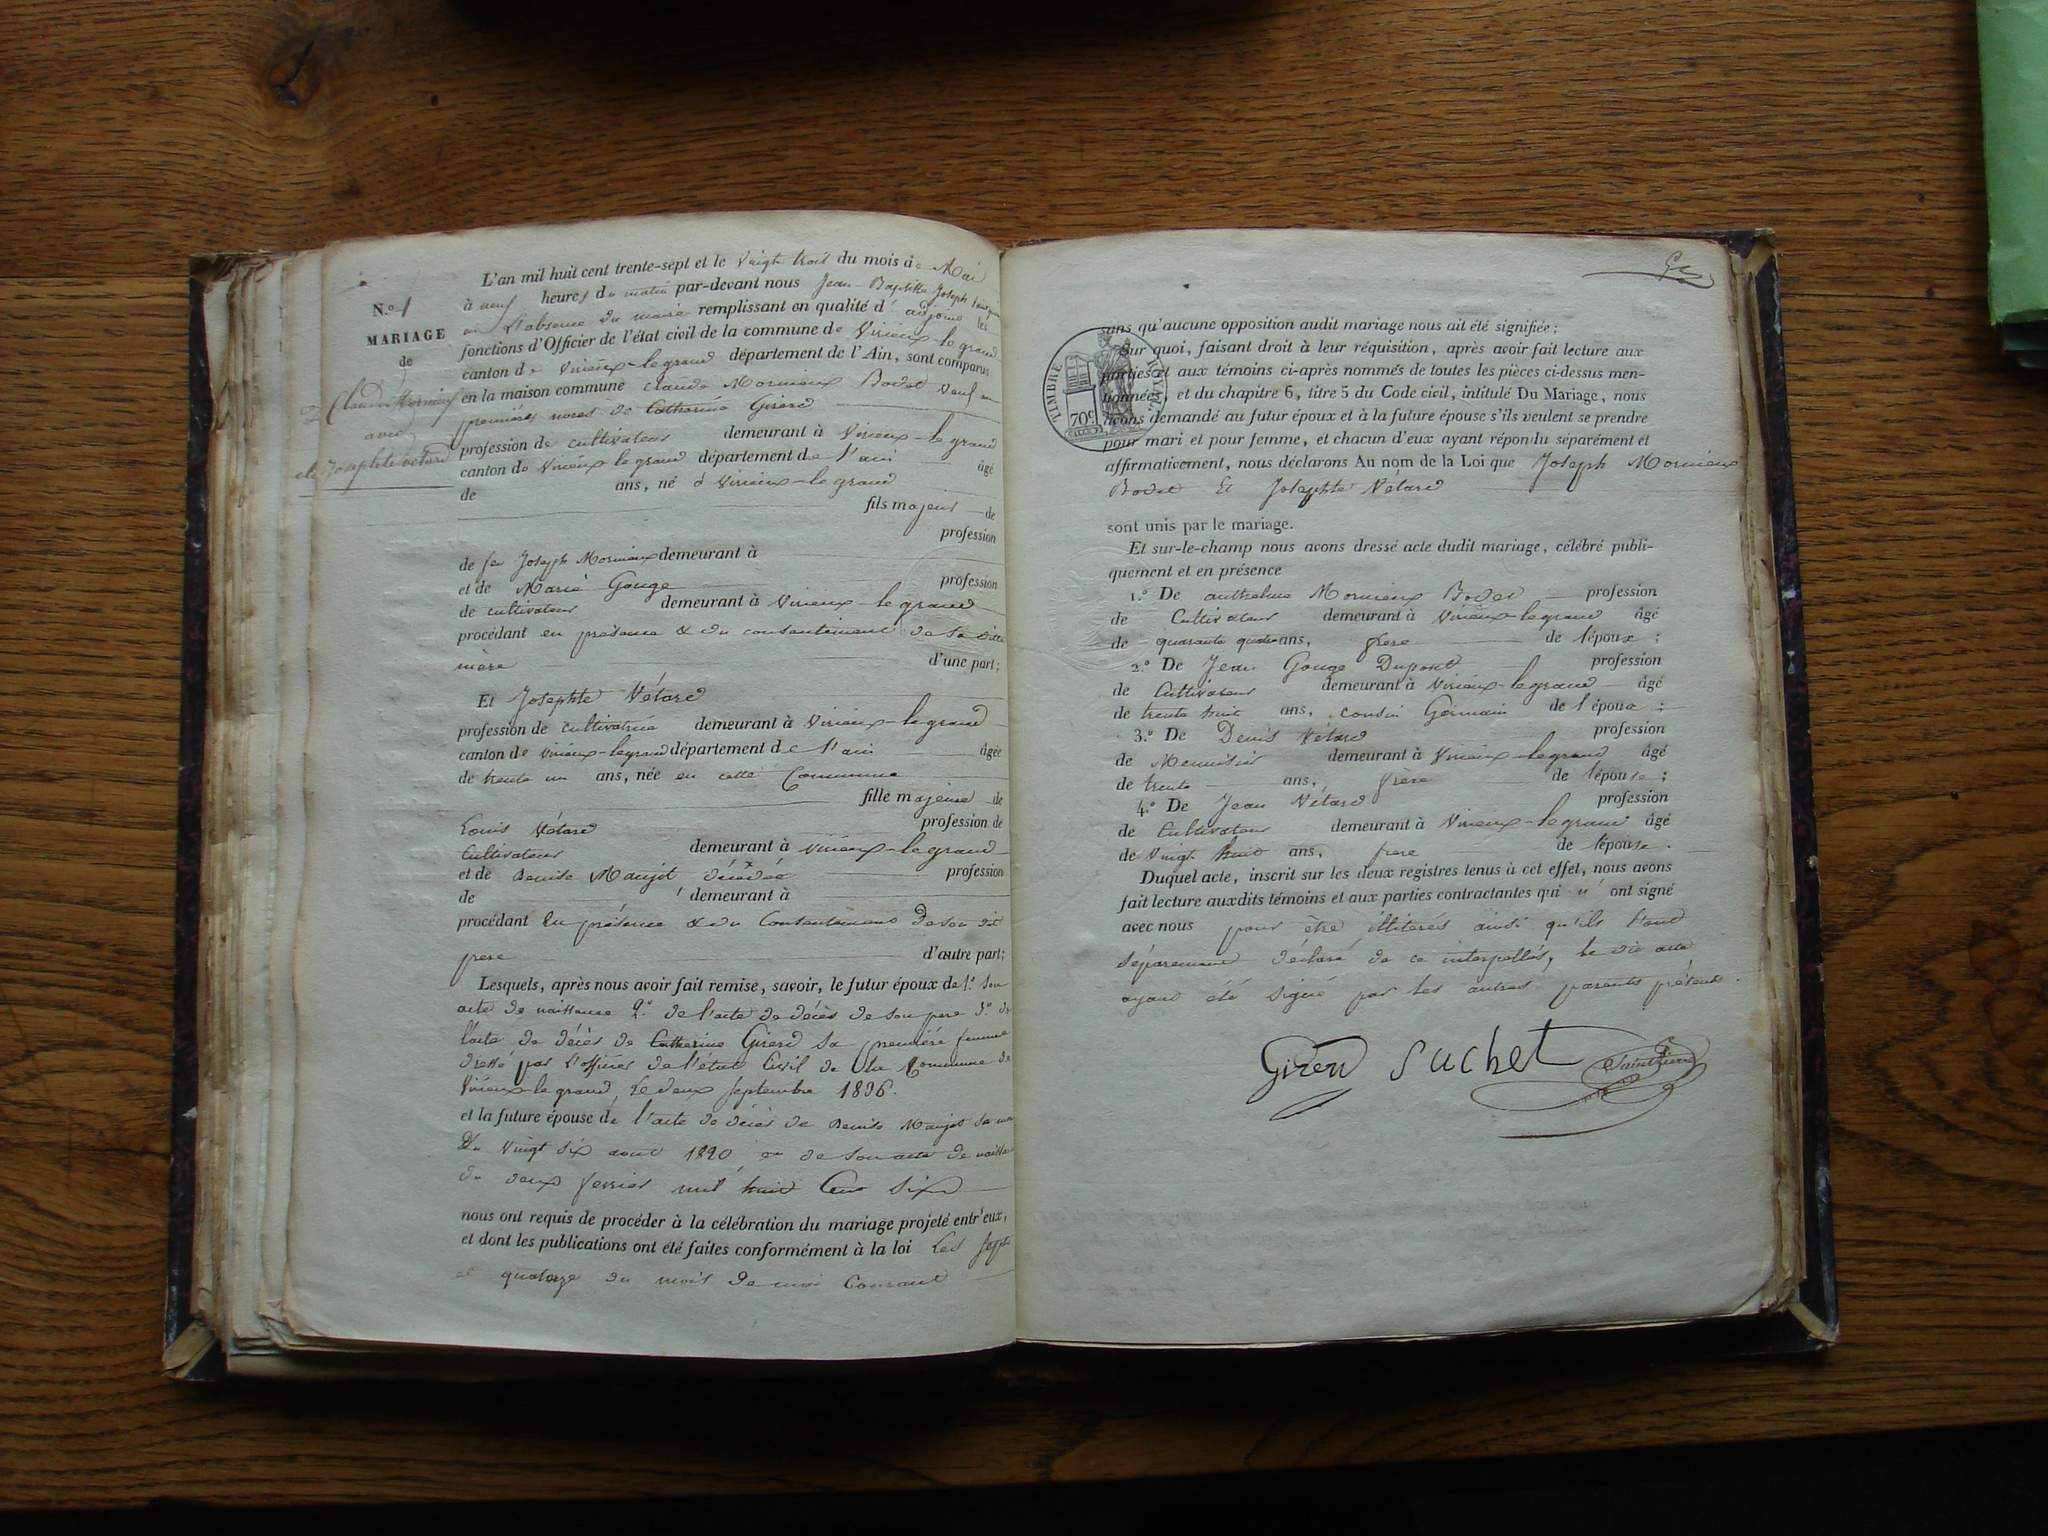 L'an mil huit cent trente-sept et le vingt trois du mois de Mai
à neuf heures du matin par-devant nous Jean Baptiste Joseph
en l'absence du maire remplissant en qualité d'adjoint les
fonctions d'Officier de l'état civil de la commune de Virieux-le grand
canton de Virieux-le-grand département de l'Ain, sont comparus
en la maison commune Claude Mornieux Bodet veuf en
premières noces de Catherine Girerd
profession de cultivateur demeurant à Virieux-le grand
canton de Virieux le grand département de l'ain âgé
de ans, né à Virieux-le grand
fils majeur de
profession
de feu Joseph Mornieux demeurant à
et de Marie Gouge profession
de cultivateur demeurant à Virieux-le grand
procédant en présence & du consentement de sa dite
mère d'une part;
Et Josephte Vétard
profession de cultivatrice demeurant à Virieux-le grand
canton de Virieux-legrand département de l'ain âgée
de trente un ans, née en cette Commune
fille majeure de
Louis Vétard profession de
Cultivateur demeurant à Virieux-le grand
et de Denise Maujot décédée profession
de demeurant à
procédant en présence & du Consentement de son dit
pere d'autre part;
Lesquels, après nous avoir fait remise, savoir, le futur époux de 1.º son
acte de naissance 2.º de l'acte de décès de son pere 3.º de
l'acte de décès de Catherine Girerd sa première femme
dressé par l'officier de l'état Civil de la Commune de
Virieux-le grand, le deux Septembre 1836.
et la future épouse de l'acte de décès de Denise Maujot sa
du vingt six aout 1820 et de son acte de
du deux fevrier mil huit Cent six
nous ont requis de procéder à la célébration du mariage projeté entr'eux,
et dont les publications ont été faites conformément à la loi les sept
et quatorze du mois de mai Courant
N.º 1
MARIAGE
de
Claude Mornieux
avec
Josephte Vétard
sans qu'aucune opposition audit mariage nous ait été signifiée;
Sur quoi, faisant droit à leur réquisition, après avoir fait lecture aux
parties et aux témoins ci-après nommés de toutes les pièces ci-dessus men-
tionnées, et du chapitre 6, titre 5 du Code civil, intitulé Du Mariage, nous
avons demandé au futur époux et à la future épouse s'ils veulent se prendre
pour mari et pour femme, et chacun d'eux ayant répondu séparément et
affirmativement, nous déclarons Au nom de la Loi que Joseph Mornieux
Bodet Et Josephte Vétard
sont unis par le mariage.
Et sur-le-champ nous avons dressé acte dudit mariage, célébré publi-
quement et en présence
1.º De Mornieux Bodet profession
de Cultivateur demeurant à Virieux-legrand âgé
de quarante quatre ans, frere de l'époux;
2.º De Jean Gouge Dupont profession
de Cultivateur demeurant à Virieux-le grand âgé
de trente huit ans, cousin Germain de l'époux;
3.º De Denis Vétard profession
de Menuisier demeurant à Virieux-le grand âgé
de trente ans, frere de l'épouse;
4.º De Jean Vétard profession
de Cultivateur demeurant à Virieux-le grand âgé
de vingt huit ans, frere de l'épouse.
Duquel acte, inscrit sur les deux registres tenus à cet effet, nous avons
fait lecture auxdits témoins et aux parties contractantes qui n'ont signé
avec nous pour être illitérés ainsi qu'ils l'ont
séparement déclaré de ce interpellés, le dit acte
ayant été signé par les autres parents présents.
Girerd Suchet Saint Pierre
TIMBRE ROYAL
70c